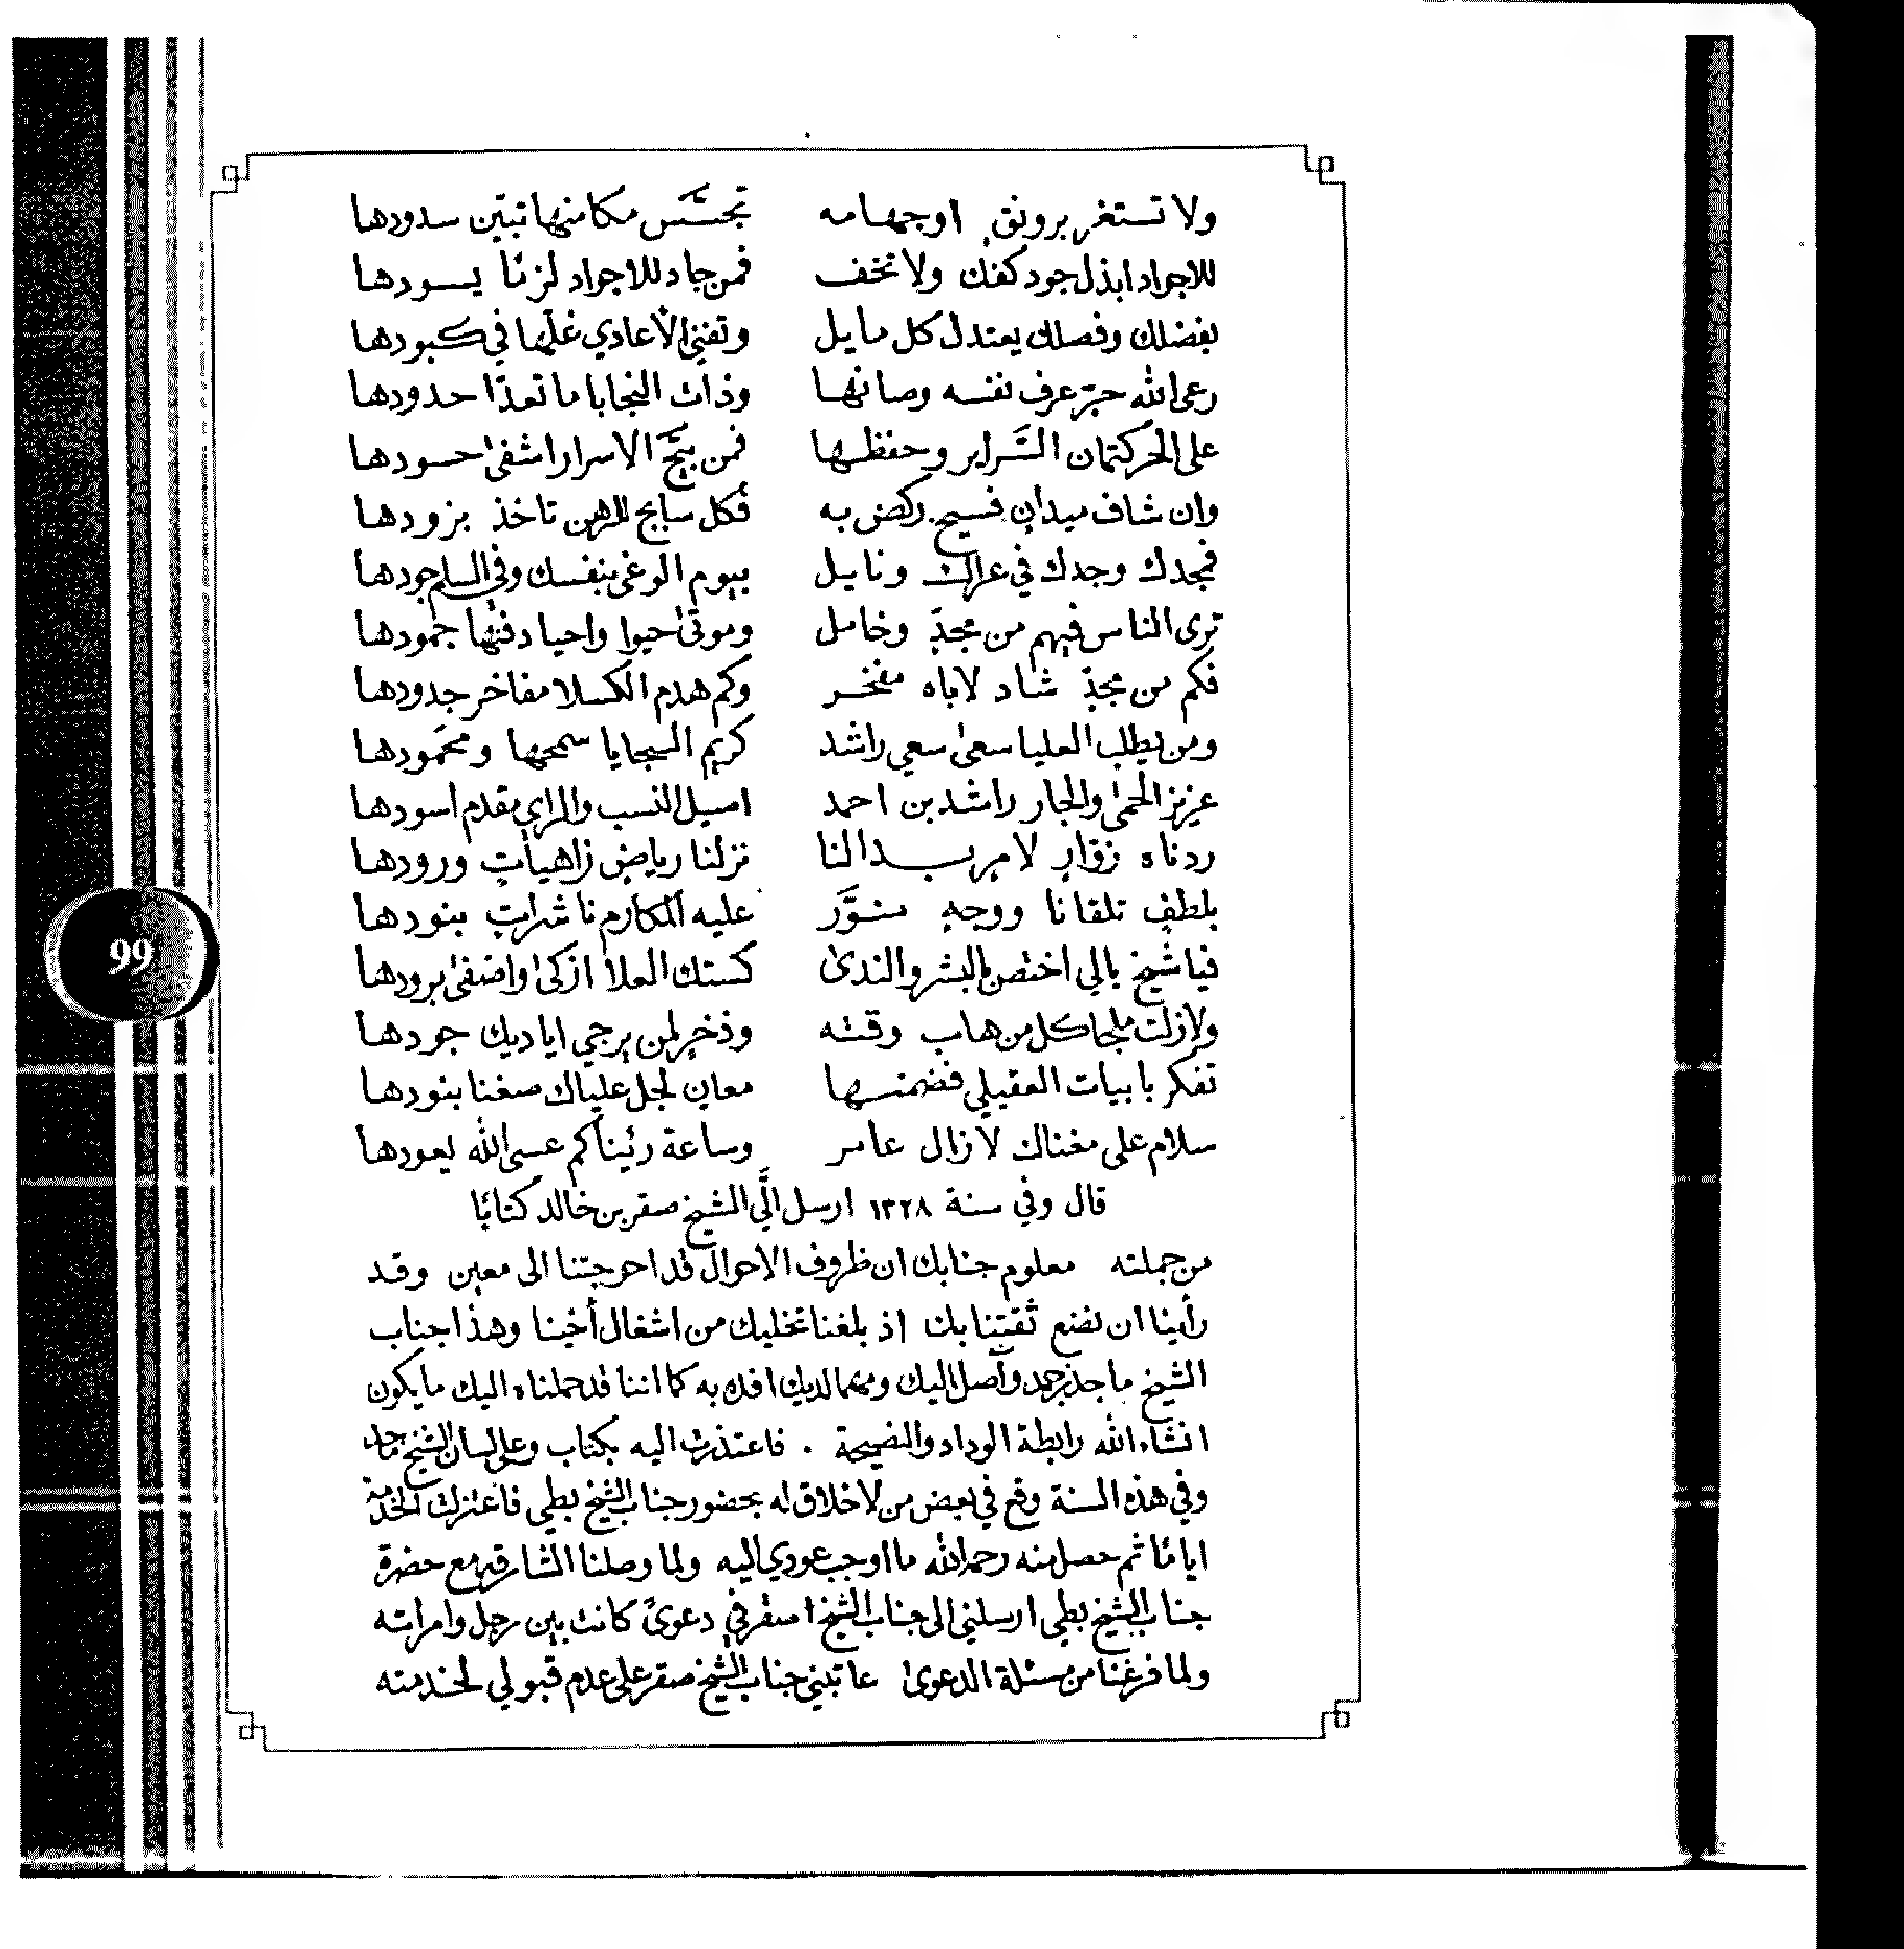 ولا تستغر برونق اوجهامه تجسّس مكامنها تبيّن سدودها
للاجواد ابذل جود كفك ولا تخف فمن جاد للاجواد لزمًا يسودها
بفضلك وفصلك يعتدل كل مايل وتفنى الأعادي غلّها في كبودها
رعى الله حبر عرف نفسه وصانها وذات النجابا ما تعدّا حدودها
على الحر كتمان السَّراير وحفظها فمن بيّح الاسرار اشفى حسودها
وان شاف ميدانٍ فسيحٍ ركض به فكل سابحٍ للرهن تاخذ بزودها
فمجدك وجدك في عراك ونايل بيوم الوغى بنفسك وفي السلم جودها
ترى الناس فيهم من مجدٍّ وخامل وموتى احيوا واحيا دفنها جمودها
فكم من مجدٍ شاد لاباه مفخر وكم هدم الكسلا مفاخر جدودها
ومن يطلب العليا سعى سعي راشد كريم السجايا سمحها ومحمودها
عزيز الحمى والجار راشد بن احمد اصيل النسب والراي مقدم اسودها
ردناه زوّارٍ لامرٍ بدا لنا نزلنا رياضٍ زاهياتٍ ورودها
بلطفٍ تلقانا ووجهٍ منوَّر عليه المكارم ناشراتٍ بنودها
فيا شيخ يالي اختص بالبشر والندى كستك العلا ازكى واضفى برودها
ولازلت ملجا كل من هاب وقته وذخرٍ لمن يرجي اياديك جودها
تفكر بابيات العقيلي فضمنها معانٍ لجل علياك صغنا بنودها
سلام على مغناك لازال عامر وساعة رئيناكم عسى الله يعودها
قال وفي سنة ١٣٢٨ ارسل الَّي الشيخ صقر بن خالد كتابًا
من جملته معلوم جنابك ان ظروف الاحوال قد احوجتنا الى معين وقد
رأينا ان نضع ثقتنا بك اذ بلغنا تخليك من اشغال أخينا وهذا جناب
الشيخ ماجد بن حمد وآصل اليك ومهما لديك افده به كما اننا قد حملناه اليك ما يكون
انشاء الله رابطة الوداد والنصيحة . فاعتذرت اليه بكتاب وعلى لسان الشيخ ماجد
وفي هذه السنة وقع في بعض من لاخلاق له بحضور جناب الشيخ بطي فاعتزلت الخدمة
ايامًا ثم حصل منه رحمه الله ما اوجب عودي اليه ولما وصلنا الشارقه مع حضرة
جناب الشيخ بطي ارسلني الى جناب الشيخ اصقر في دعوىً كانت بين رجل وامراته
ولما فرغنا من مسئلة الدعوى عاتبني جناب الشيخ صقر على عدم قبولي لخدمته
99